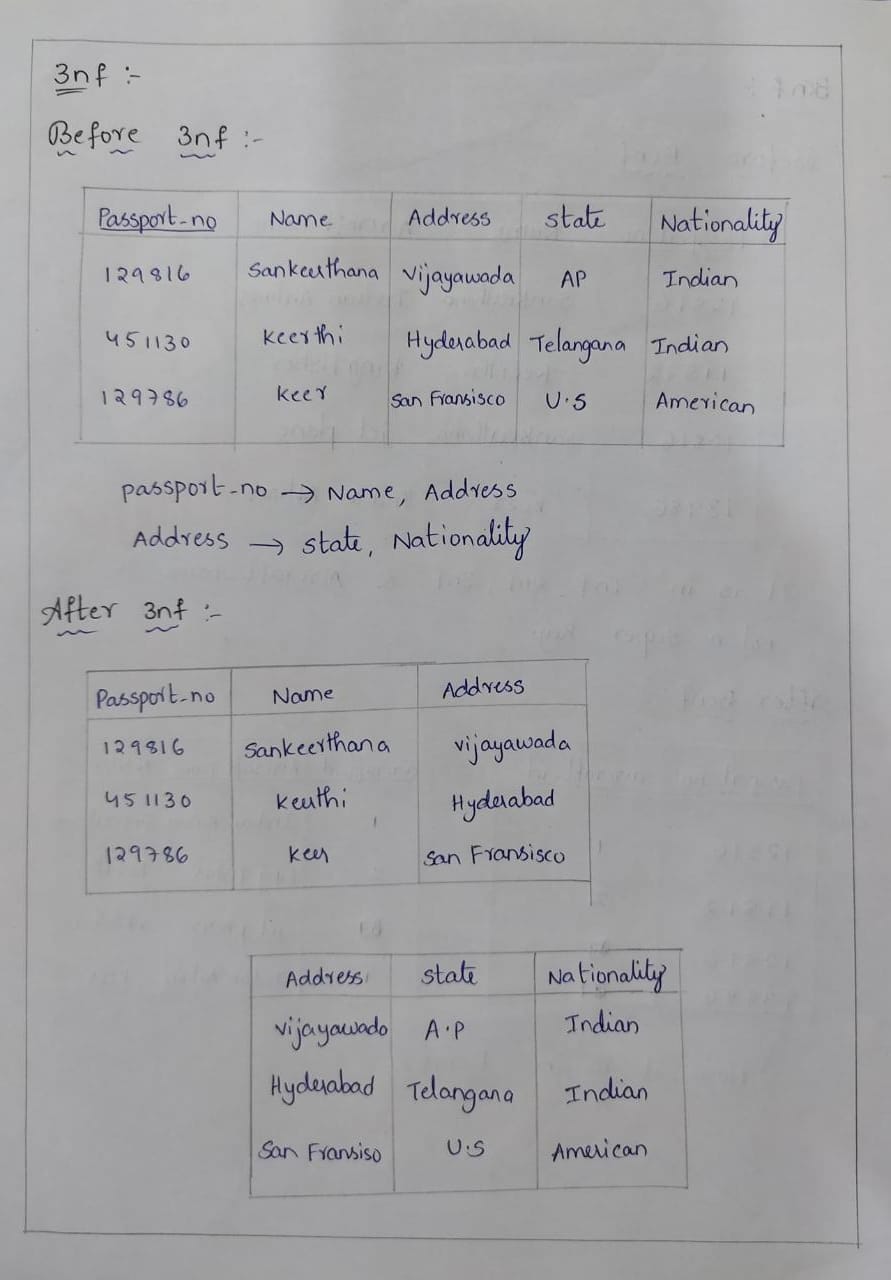 3nf :-
Before 3nf :-
Passport-no Name Address state Nationality
129816 Sankeerthana Vijayawada AP Indian
451130 Keerthi Hyderabad Telangana Indian
129786 Keer San Fransisco U.S American
passport-no → Name, Address
Address → state, Nationality
After 3nf :-
Passport-no Name Address
129816 Sankeerthana vijayawada
451130 Keerthi Hyderabad
129786 Keer San Fransisco
Address state Nationality
vijayawado A.P Indian
Hyderabad Telangana Indian
San Fransiso U.S American